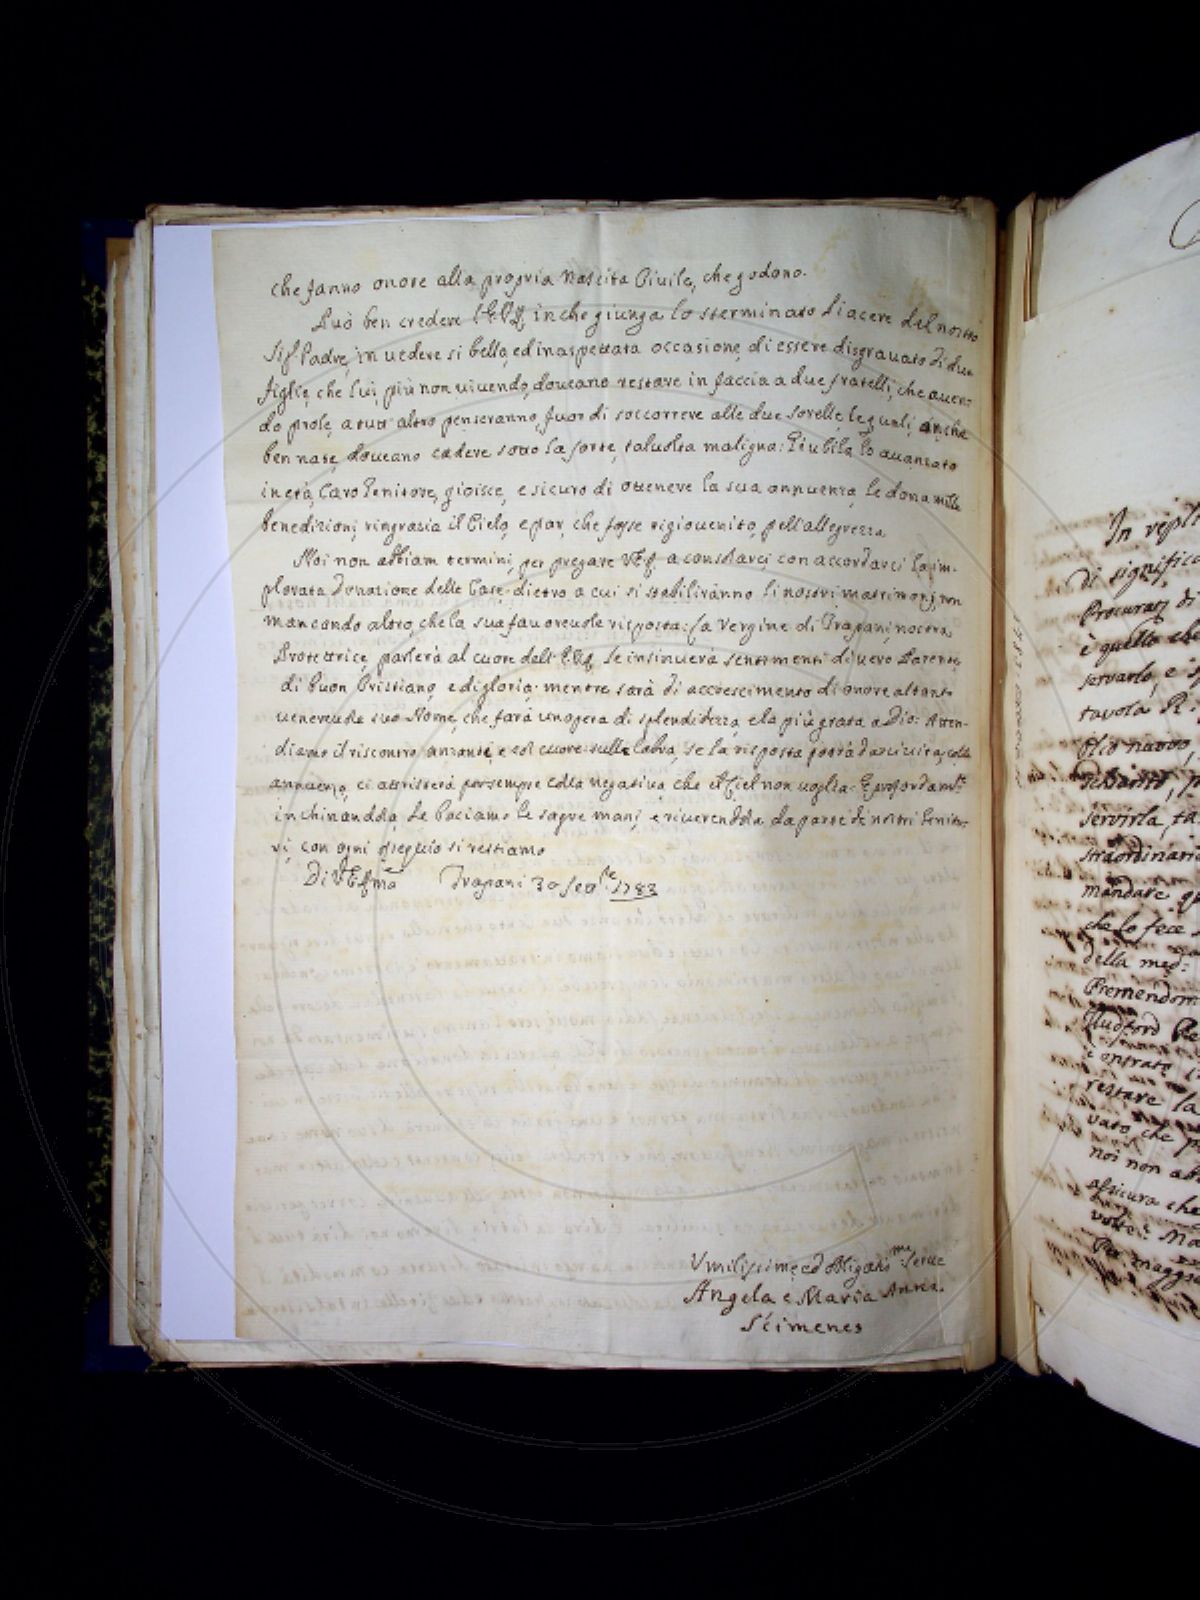 che fanno onore alla propria nascita Civile, che godono.
Può ben credere in che giunga lo sterminato piacere del nostro
Sig.r Padre, in vedere si bella, ed inaspettata occasione, di essere disgravato di due
figlie, che lui, più non vivendo, doveano restare in faccia a due fratelli, che aven-
do prole, a tutt'altro penseranno, fuor di soccorrere alle due sorelle, le quali, anche
ben nate, doveano cadere sotto la sorte, talvolta maligna: Giubila lo avanzato
in età, Caro Genitore, gioisce, e sicuro di ottenere la sua annuenza, Le dona mille
benedizioni, ringrazia il Cielo, e par, che fosse rigiovenito, pell'allegrezza.
Noi non abbiam termini, per pregare V.E. a consolarci, con accordarci la im-
plorata donazione delle Case, dietro a cui si stabiliranno li nostri matrimonj, non
mancando altro, che la sua favorevole risposta: La Vergine di Trapani, nostra
Protettrice, parlerà al cuore dell' Le insinuerà sentimenti di vero Parente,
di buon Cristiano, e di gloria, mentre sarà di accrescimento di onore al
venerevole suo Nome, che farà un opera di splendidezza, e la più grata a Dio: Atten-
diamo il riscontro, e col cuore sulle labra, se la risposta potrà darci vita, colla
annuenza, o ci attristerà per sempre colla negativa, che il Ciel non voglia: E profondam.te
inchinandola, Le baciamo le sagre mani, e riverendola da parte de nostri Genito-
ri, con ogni ossequio si restiamo
Di V.E. Trapani 30 Sep.re 1783
Umilissime, ed Obligatis.me Serve
Angela e Maria Anna
Sieimenes
In repl
di significa
Procurar di
è quello che
servarlo, e s
tavola R:
Olio nuovo,
servirla, ta
straordinari
mandare q
che lo fece
della med:
restare la
vato che p
noi non ab
assicura che
volte: Ma
Per maggi